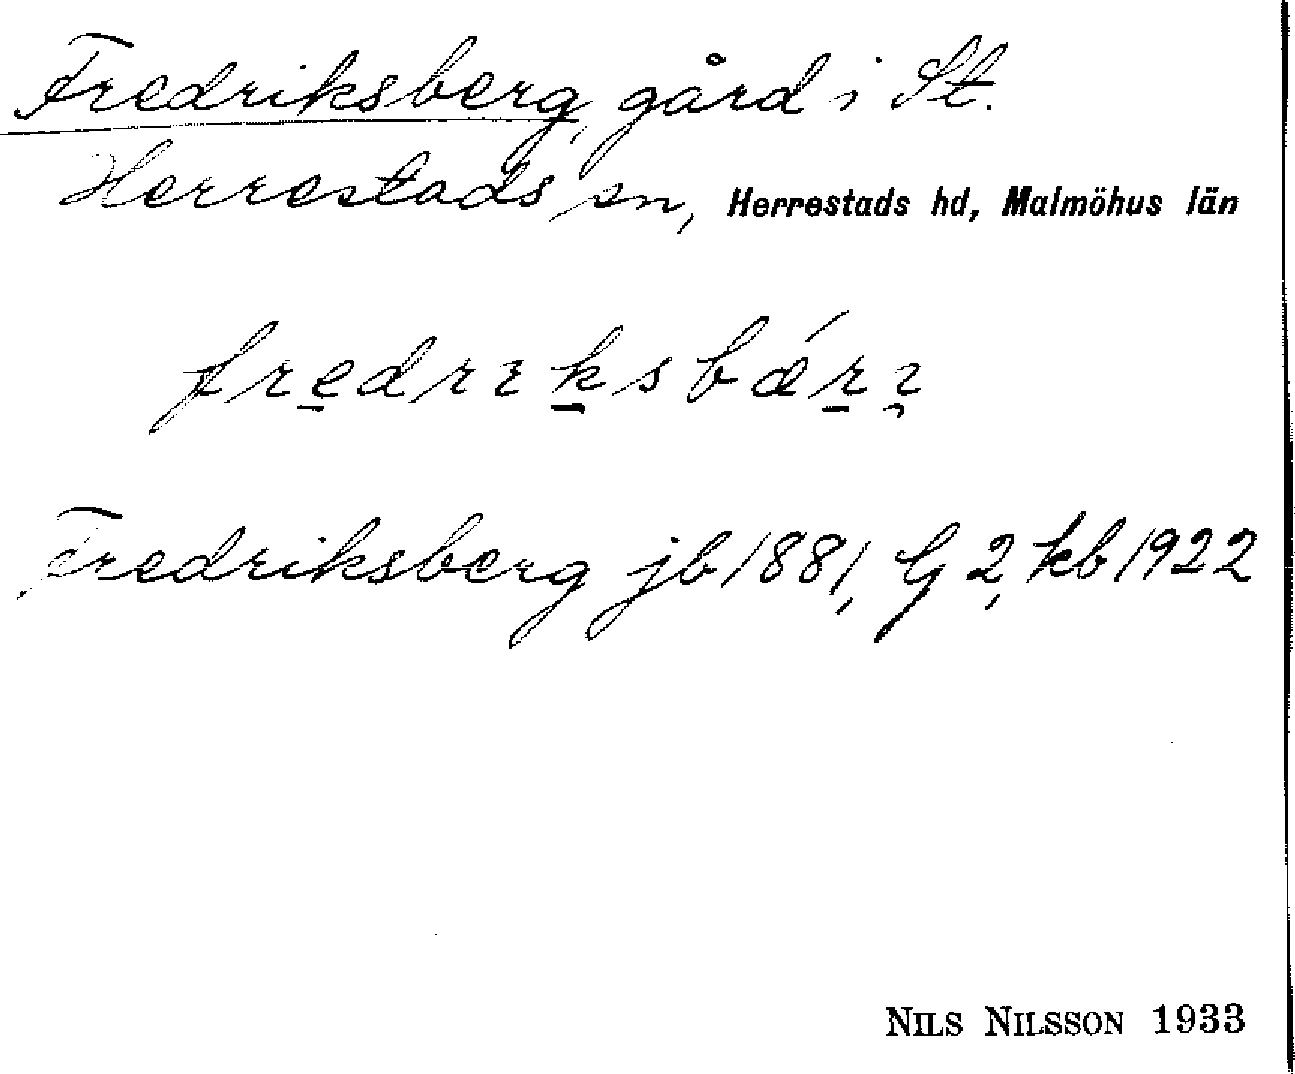 Fredriksberg, gård i St.
Herrestads sn, Herrestads hd, Malmöhus län
Fredriksberg jb 1881, G 2, kb 1922
NILS NILSSON 1933